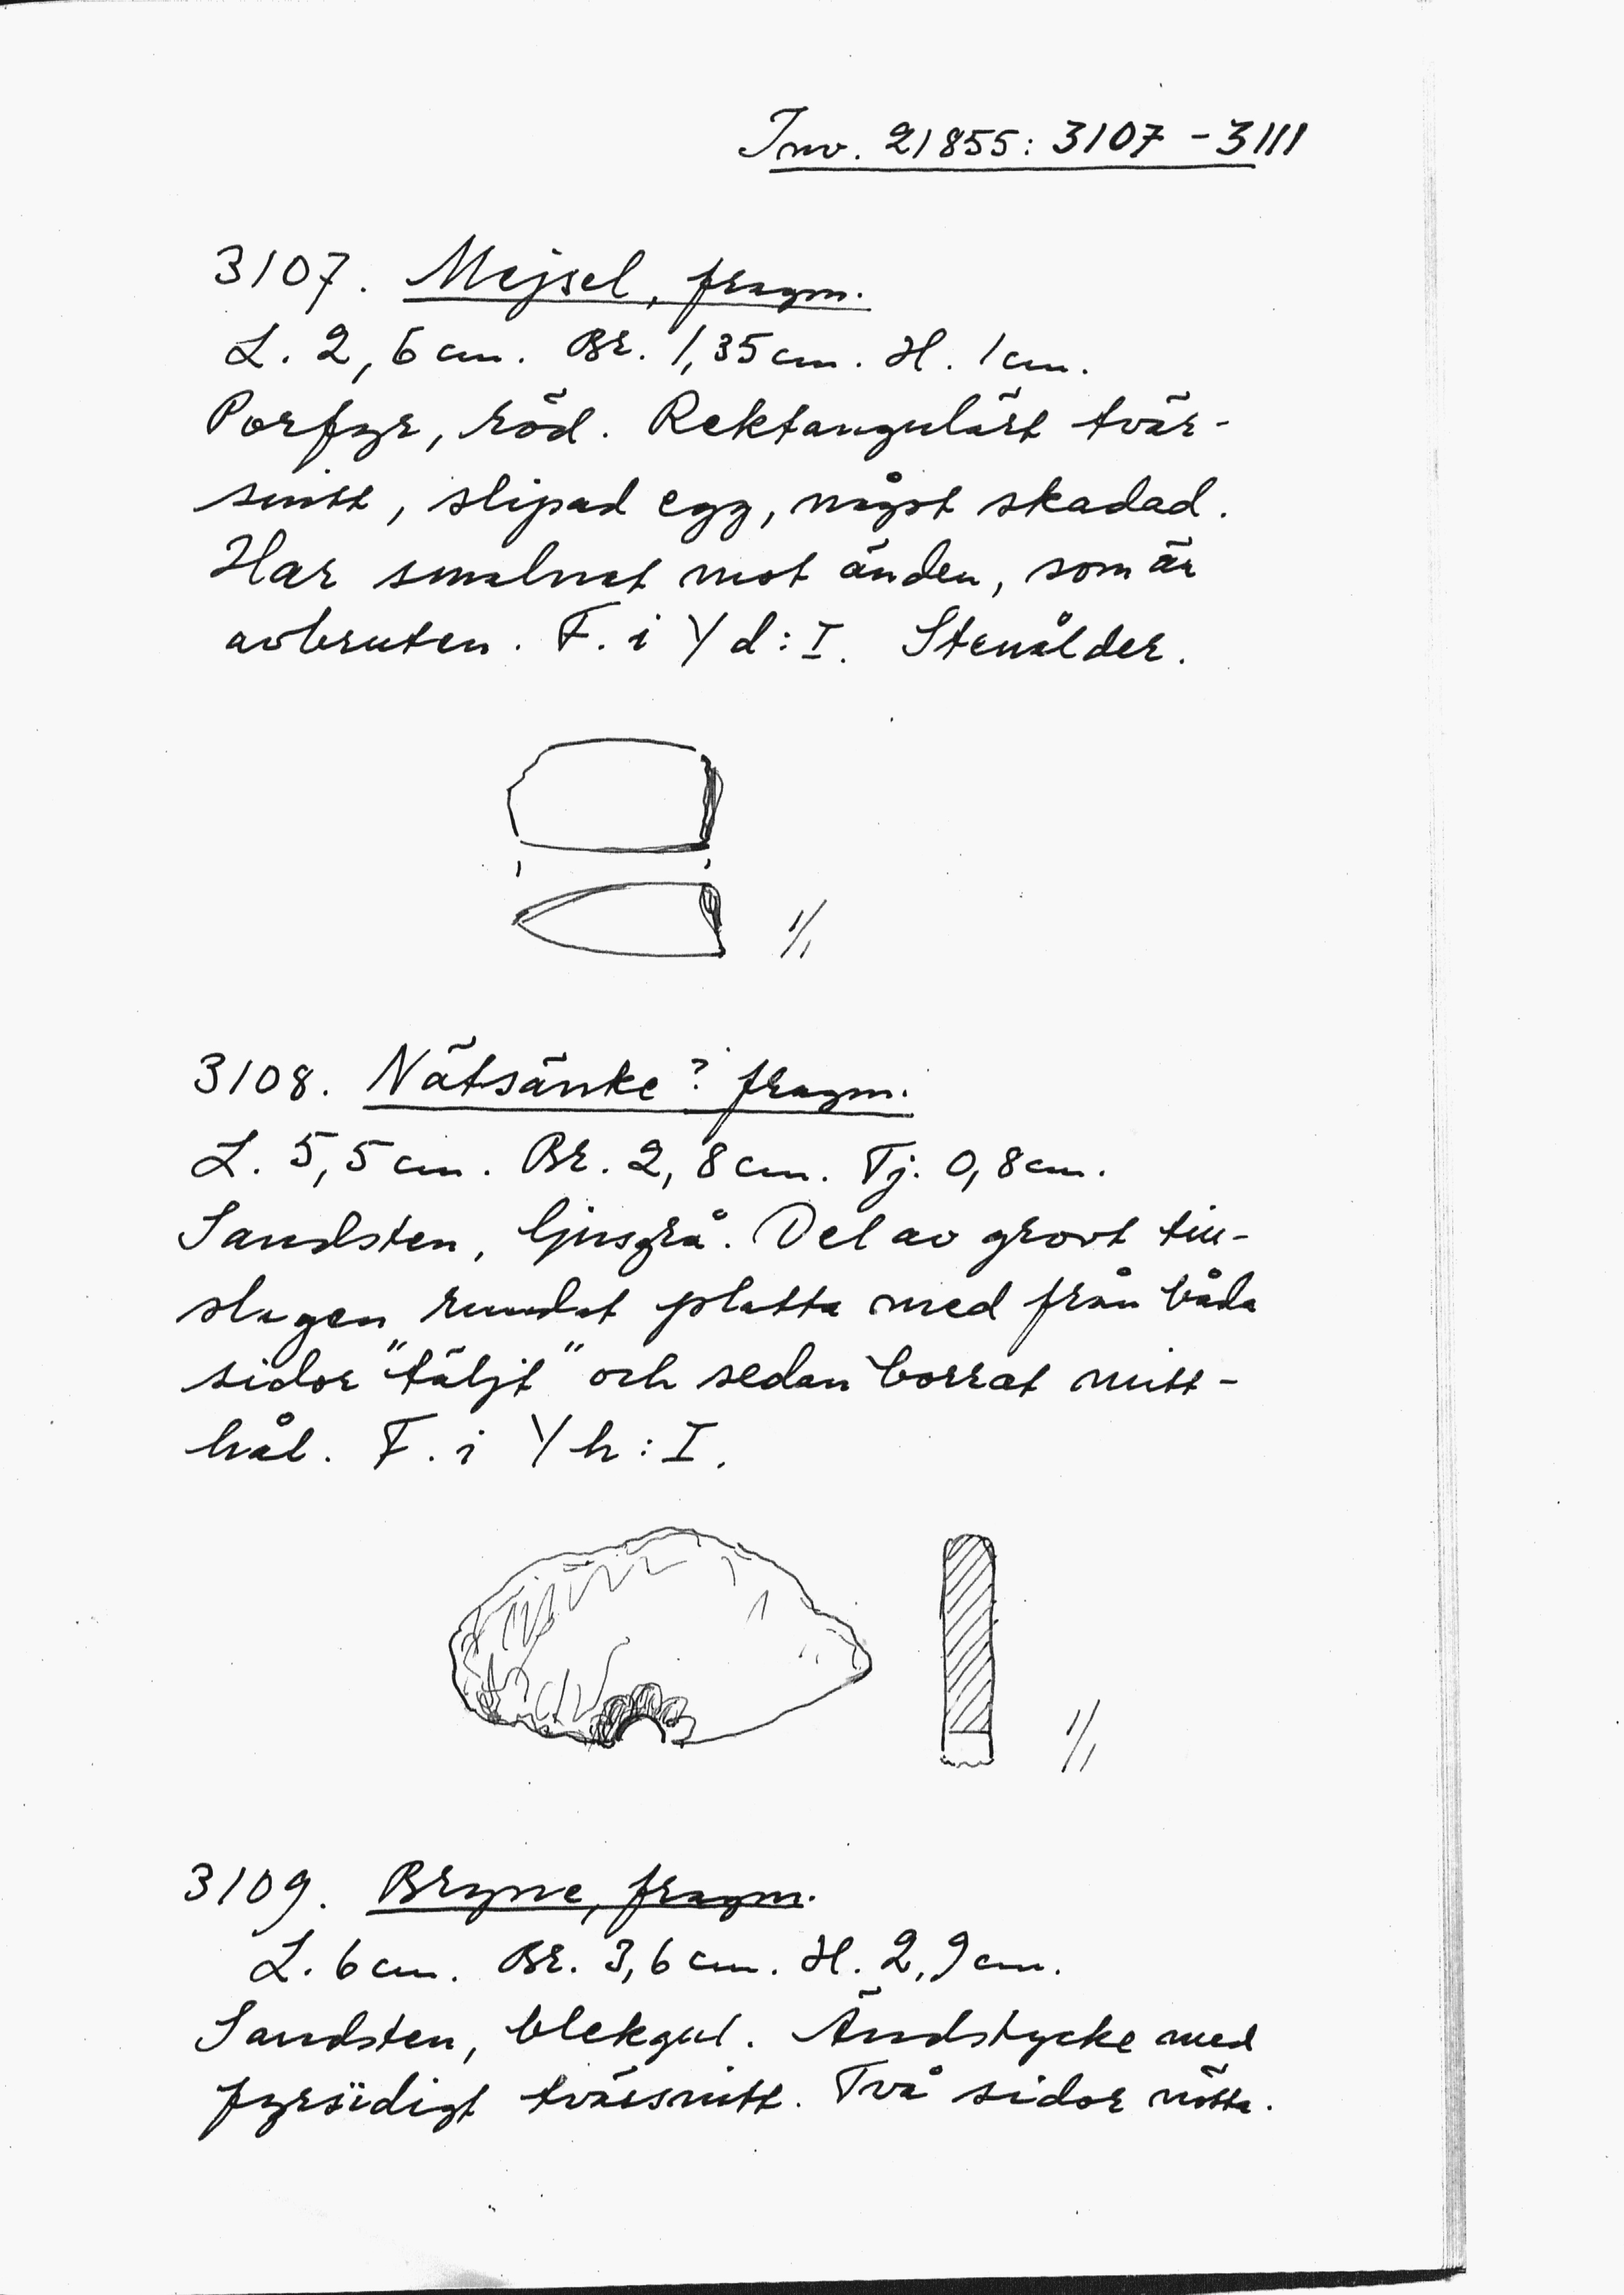 Inv. 21855: 3107 - 3111
3107. Mejsel, fragm.
L. 2,6 cm. Br. 1,35 cm. H. 1 cm.
Porfyr, röd. Rektangulärt tvär-
snitt, slipad egg, något skadad.
Har smalnat mot änden, som är
avbruten. F. i Y d: I. Stenålder.
1/1
3108. Nätsänke? fragm.
L. 5,5 cm. Br. 2,8 cm. Tj. 0,8 cm.
Sandsten, ljusgrå. Del av grovt till-
slagen rundat platta med från båda
sidor "täljt" och sedan borrat mitt-
hål. F. i Y h: I.
1/1
3109. Bryne, fragm.
L. 6 cm. Br. 3,6 cm. H. 2,9 cm.
Sandsten, blekgul. Ändstycke med
fyrsidigt tvärsnitt. Två sidor nötta.